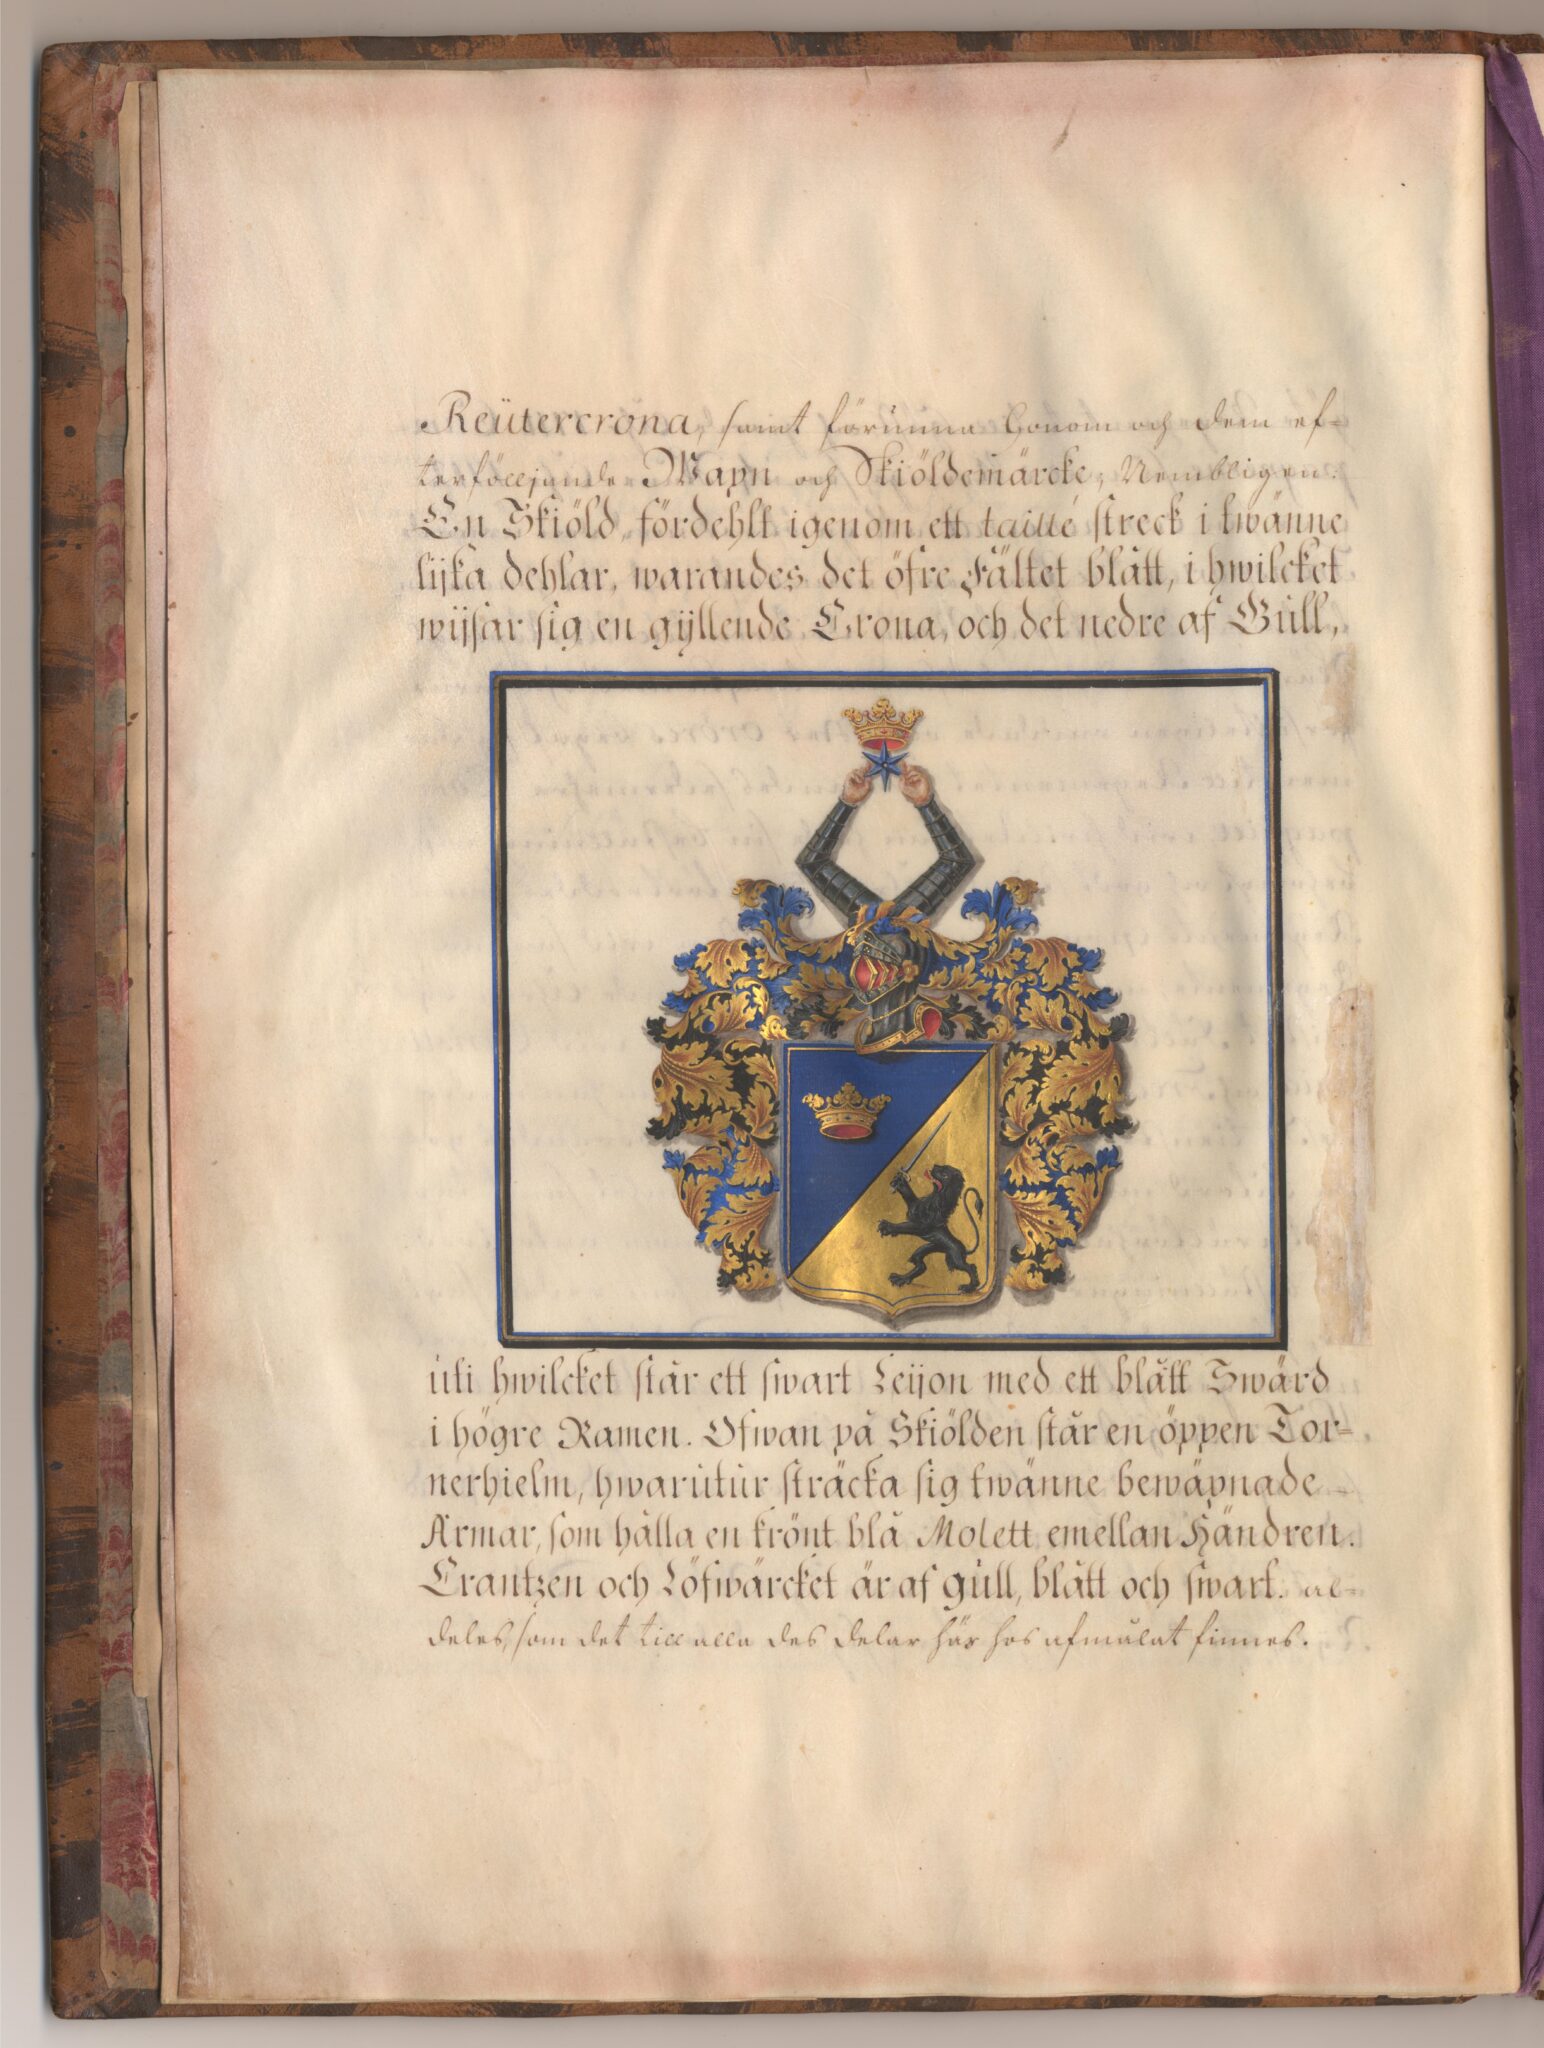 Reütercrona, samt förunna honom och dem ef=
terfölljande Wapn och Skiöldemärcke; Nembligen:
En Skiöld, fördehlt igenom ett taillé streck i twänne
lijka dehlar, warandes det öfre Fältet blått, i hwilcket
wijsar sig en gyllende Crona, och det nedre af Gull,
uti hwilcket står ett swart Leijon med ett blått Swärd
i högre Ramen. Ofwan på Skiölden står en öppen Tor=
nerhielm, hwarutur sträcka sig twänne bewäpnade
Armar, som hålla en krönt blå Molett emellan Händren.
Crantzen och Löfwärcket är af gull, blått och swart. al=
deles, som det till alla des delar här hos afmålat finnes.